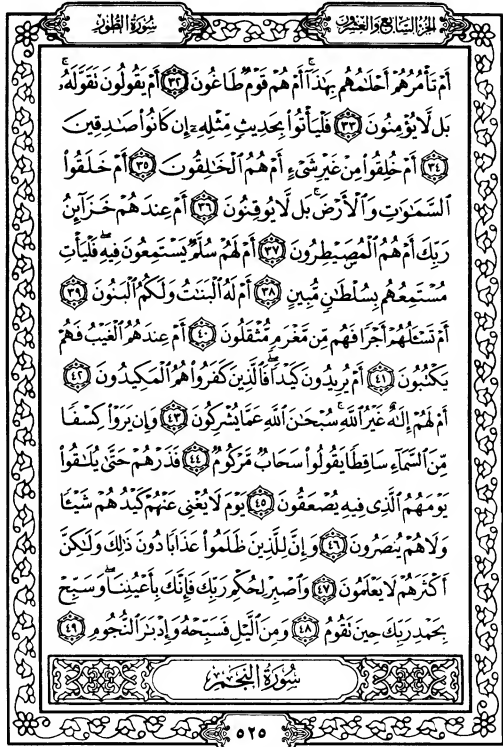 الجزء السابع والعشرون
سورة الطور
أَمْ تَأْمُرُهُمْ أَحْلَٰمُهُم بِهَٰذَآ ۚ أَمْ هُمْ قَوْمٌ طَاغُونَ ﴿٣٢﴾ أَمْ يَقُولُونَ تَقَوَّلَهُۥ ۚ
بَل لَّا يُؤْمِنُونَ ﴿٣٣﴾ فَلْيَأْتُوا۟ بِحَدِيثٍ مِّثْلِهِۦٓ إِن كَانُوا۟ صَٰدِقِينَ
﴿٣٤﴾ أَمْ خُلِقُوا۟ مِنْ غَيْرِ شَىْءٍ أَمْ هُمُ ٱلْخَٰلِقُونَ ﴿٣٥﴾ أَمْ خَلَقُوا۟
ٱلسَّمَٰوَٰتِ وَٱلْأَرْضَ ۚ بَل لَّا يُوقِنُونَ ﴿٣٦﴾ أَمْ عِندَهُمْ خَزَآئِنُ
رَبِّكَ أَمْ هُمُ ٱلْمُصَۣيْطِرُونَ ﴿٣٧﴾ أَمْ لَهُمْ سُلَّمٌ يَسْتَمِعُونَ فِيهِ ۖ فَلْيَأْتِ
مُسْتَمِعُهُم بِسُلْطَٰنٍ مُّبِينٍ ﴿٣٨﴾ أَمْ لَهُ ٱلْبَنَٰتُ وَلَكُمُ ٱلْبَنُونَ ﴿٣٩﴾
أَمْ تَسْـَٔلُهُمْ أَجْرًا فَهُم مِّن مَّغْرَمٍ مُّثْقَلُونَ ﴿٤٠﴾ أَمْ عِندَهُمُ ٱلْغَيْبُ فَهُمْ
يَكْتُبُونَ ﴿٤١﴾ أَمْ يُرِيدُونَ كَيْدًا ۖ فَٱلَّذِينَ كَفَرُوا۟ هُمُ ٱلْمَكِيدُونَ ﴿٤٢﴾
أَمْ لَهُمْ إِلَٰهٌ غَيْرُ ٱللَّهِ ۚ سُبْحَٰنَ ٱللَّهِ عَمَّا يُشْرِكُونَ ﴿٤٣﴾ وَإِن يَرَوْا۟ كِسْفًا
مِّنَ ٱلسَّمَآءِ سَاقِطًا يَقُولُوا۟ سَحَابٌ مَّرْكُومٌ ﴿٤٤﴾ فَذَرْهُمْ حَتَّىٰ يُلَٰقُوا۟
يَوْمَهُمُ ٱلَّذِى فِيهِ يُصْعَقُونَ ﴿٤٥﴾ يَوْمَ لَا يُغْنِى عَنْهُمْ كَيْدُهُمْ شَيْـًٔا
وَلَا هُمْ يُنصَرُونَ ﴿٤٦﴾ وَإِنَّ لِلَّذِينَ ظَلَمُوا۟ عَذَابًا دُونَ ذَٰلِكَ وَلَٰكِنَّ
أَكْثَرَهُمْ لَا يَعْلَمُونَ ﴿٤٧﴾ وَٱصْبِرْ لِحُكْمِ رَبِّكَ فَإِنَّكَ بِأَعْيُنِنَا ۖ وَسَبِّحْ
بِحَمْدِ رَبِّكَ حِينَ تَقُومُ ﴿٤٨﴾ وَمِنَ ٱلَّيْلِ فَسَبِّحْهُ وَإِدْبَٰرَ ٱلنُّجُومِ ﴿٤٩﴾
سُورَةُ النَّجْمِ
٥٢٥